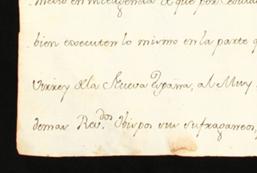 en inteligencia de que por
bien executen lo mismo en la parte q
Virrey de la Nueva España, al Muy
demas Rev.dos Obispos sus sufraganeos,